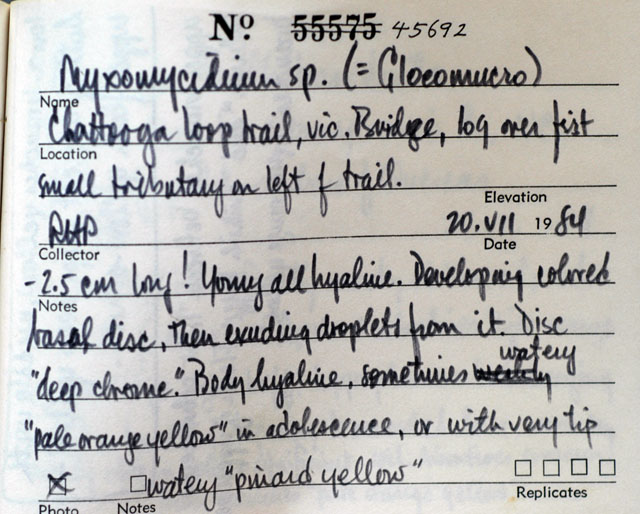 Nº 55575 45692
Myxomycidium sp. (= Gloeomucro)
Name
Chattooga loop trail, vic. Bridge, log over first
Location
small tributary on left of trail.
Elevation
RHP 20.VII 1984
Collector Date
-2.5 cm long! Young all hyaline. Developing colored
Notes
basal disc, then exuding droplets from it. Disc
"deep chrome." Body hyaline, sometimes watery
"pale orange yellow" in adolescence, or with very tip
watery "pinard yellow"
Photo Notes Replicates